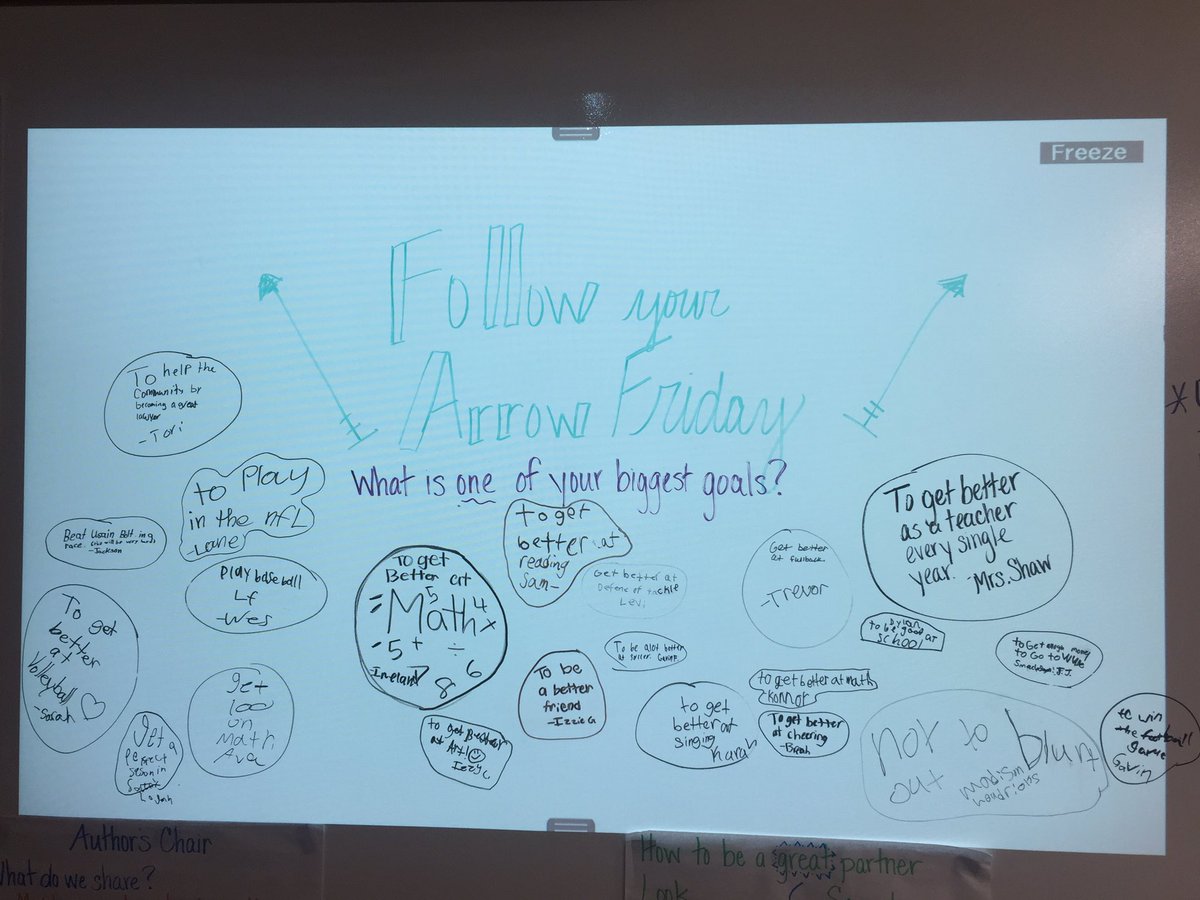 Freeze
Follow your
Arrow Friday
What is one of your biggest goals?
To help the
Community by
becoming a great
lawyer
-Tori
to Play
in the nfL
-Lane
Beat Usain Bolt in a
race.
-Jackson
Play baseball
Lf
-Wes
To
get
better
at
Volleyball
-Sarah
get
100
on
Math
Ava
Get a
perfect
season in
To get
Better at
Math
5
4
x
5
+
÷
6
8
Ireland
to get
better at
reading
Sam-
Get better at
Defensive tackle
Levi
Get better
at fullback
-Trevor
To get better
as a teacher
every single
year.
-Mrs. Shaw
Dylan
to be good at
SCHOOL
to Get enough money
to Go to WWE
Smackdown! J.J.
To be alot better
at soccer.
To be
a better
friend
-Izzie G
to get Better
at Art!
Izzy C
to get
better at
singing
Karah
to get better at math
Konnor
To get better
at cheering
-Breah
not to blurt
out
madison
to win
the football
game
Gavin
Author's Chair
What do we share?
How to be a great partner
Look